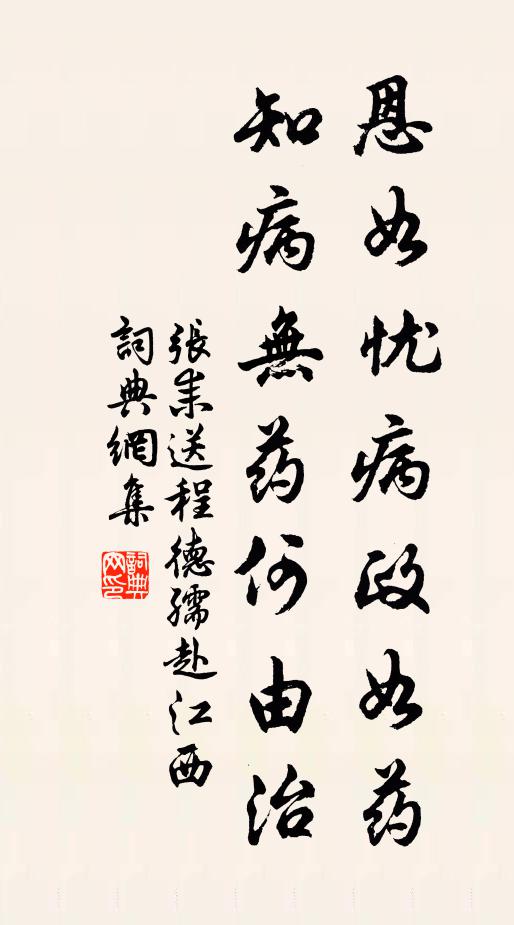 恩如忧病政如药
知病無药何由治
張耒送程德孺赴江西
詞典網集
詞典网印